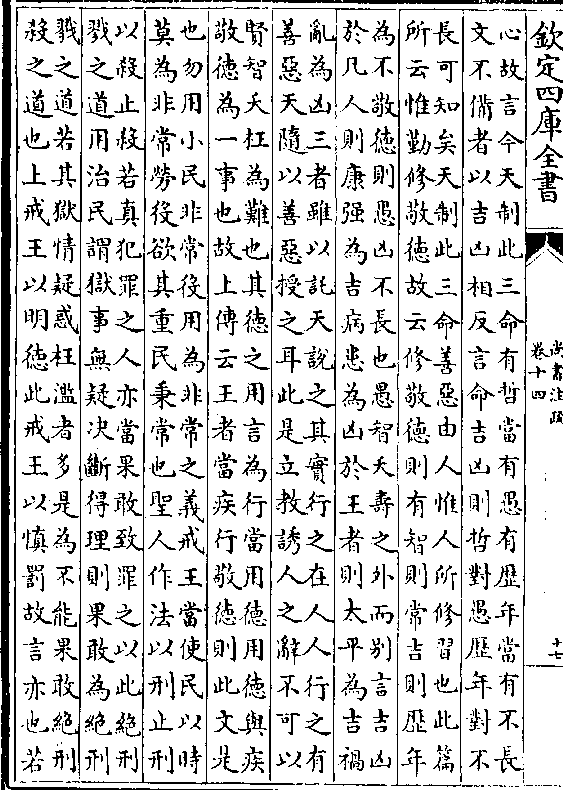 欽定四庫全書
尚書注疏
卷十四
十七
心故言今天制此三命有哲當有愚有歷年當有不長
文不備者以吉凶相反言命吉凶則哲對愚歷年對不
長可知矣天制此三命善惡由人惟人所修習也此篇
所云惟勤修敬德故云修敬德則有智則常吉則歷年
為不敬德則愚凶不長也愚智夭壽之外而别言吉凶
於凡人則康强為吉病患為凶於王者則太平為吉禍
亂為凶三者雖以託天說之其實行之在人人行之有
善惡天隨以善惡授之耳此是立教誘人之辭不可以
賢智夭枉為難也其德之用言為行當用德用德與疾
敬德為一事也故上傳云王者當疾行敬德則此文是
也勿用小民非常役用為非常之義戒王當使民以時
莫為非常勞役欲其重民秉常也聖人作法以刑止刑
以殺止殺若真犯罪之人亦當果敢致罪之以此絶刑
戮之道用治民謂獄事無疑决斷得理則果敢為絶刑
戮之道若其獄情疑惑枉濫者多是為不能果敢絶刑
殺之道也上戒王以明德此戒王以慎罰故言亦也若